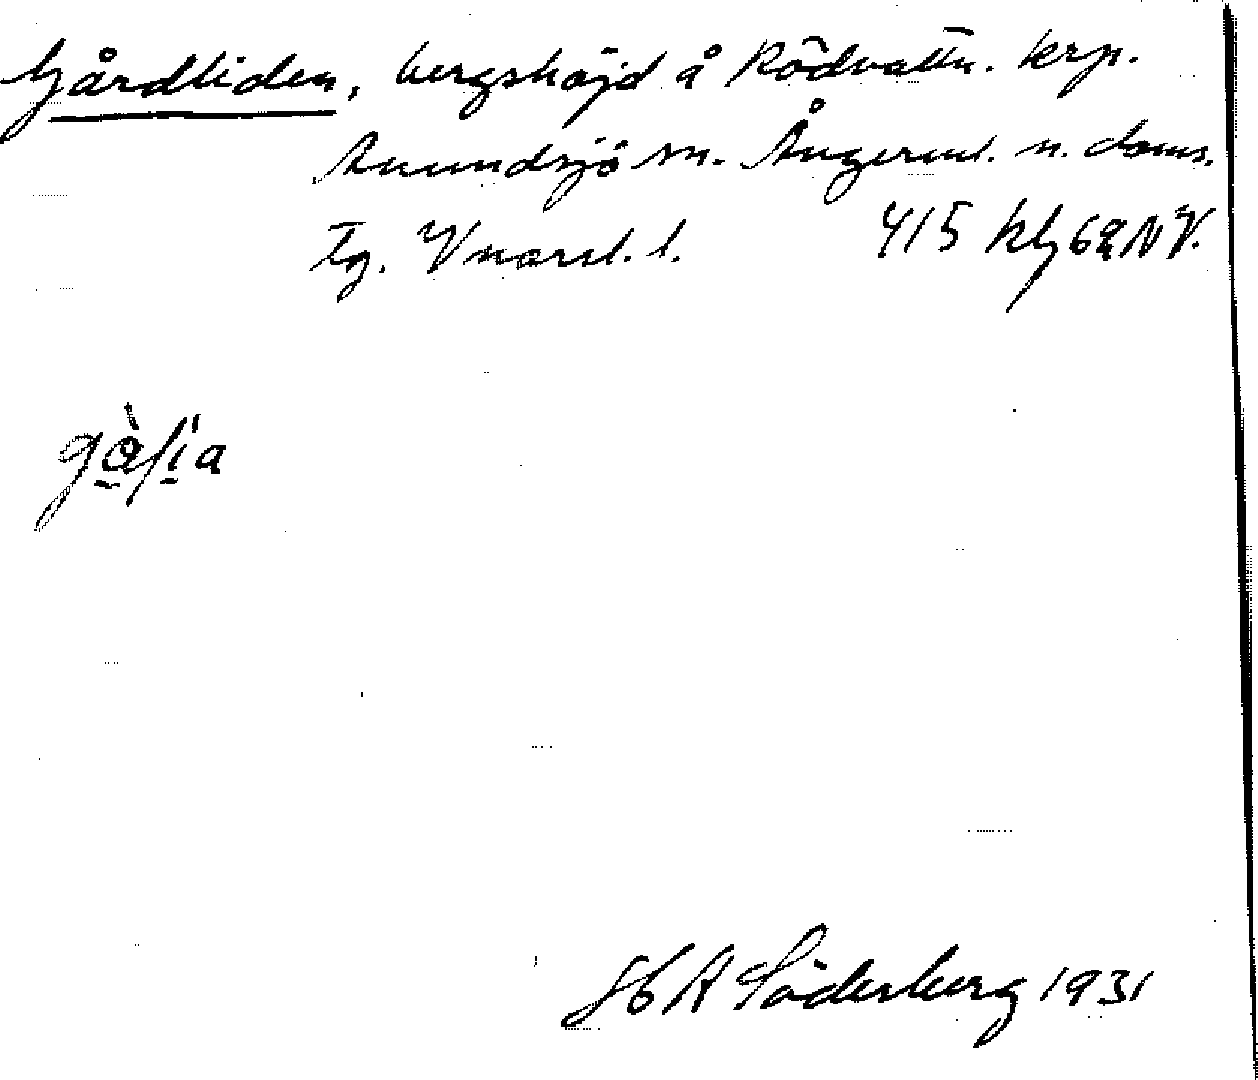 Gårdliden, bergshöjd å Rödvattn. krp.
Anundsjö sn. Ångerml. n. doms.
tg. Vnorrl. l. 415 Kbl 62 NV.
gàlia
H A Söderberg 1931